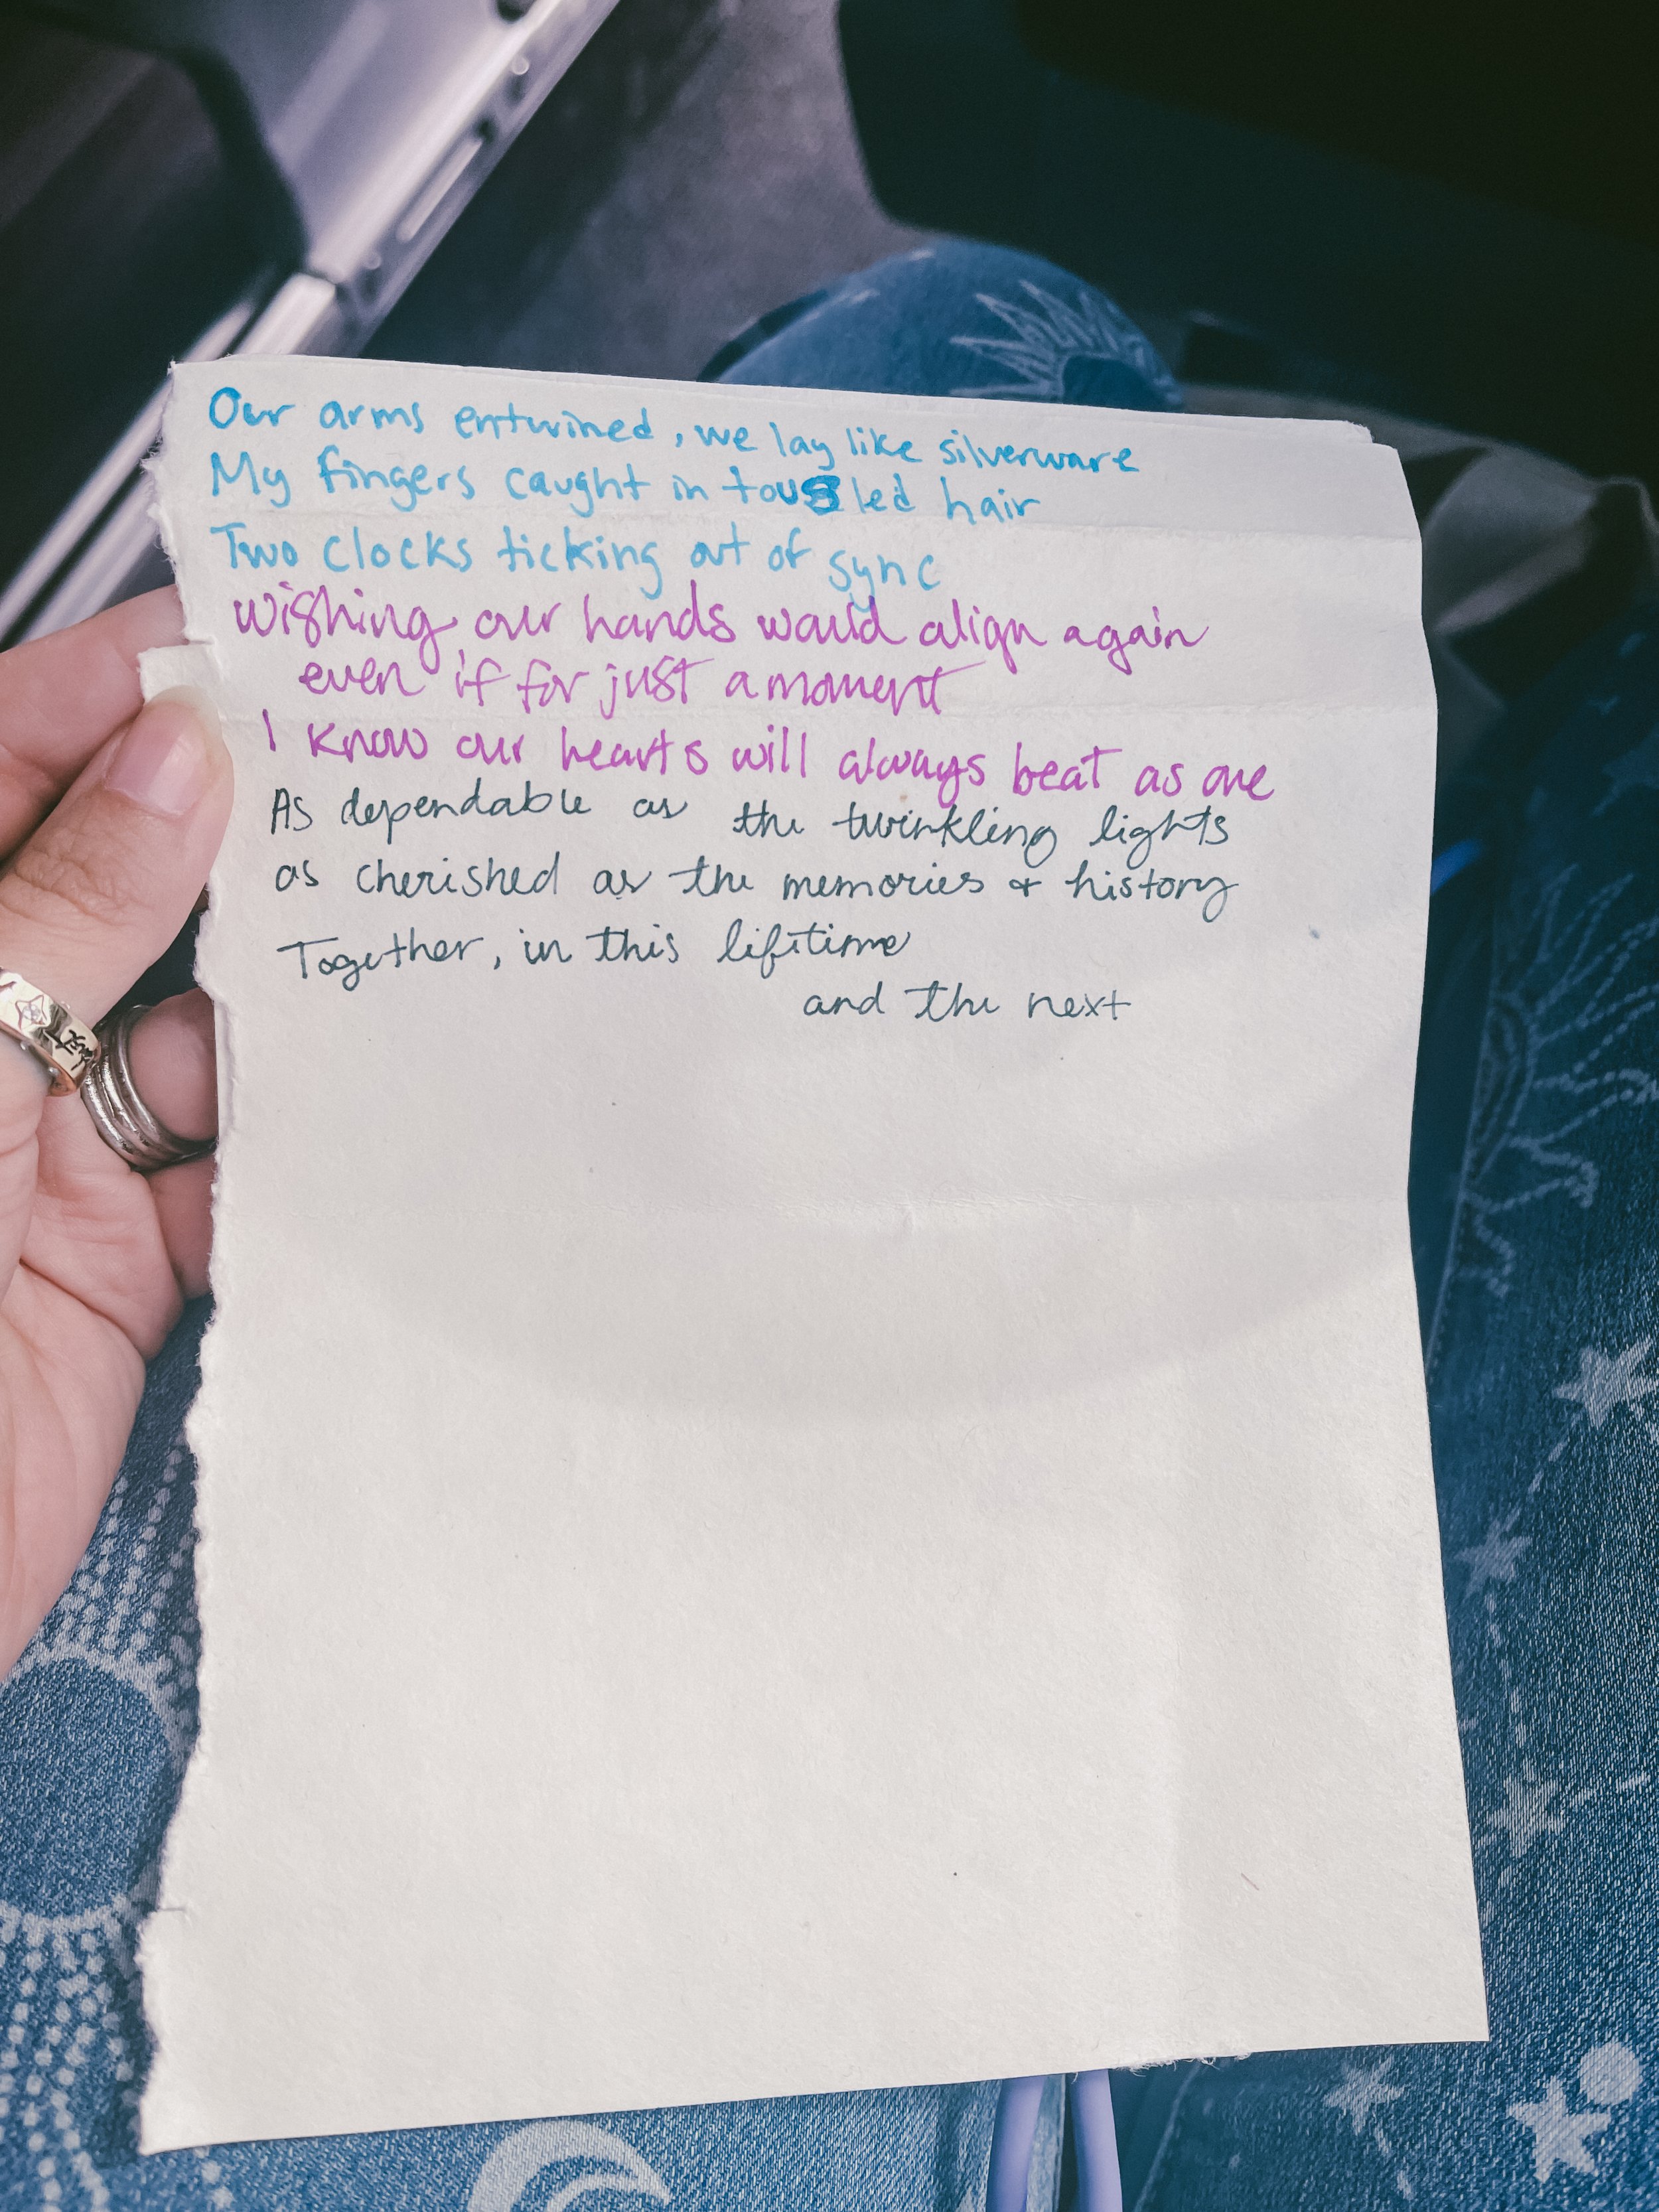 Our arms entwined, we lay like silverware
My fingers caught in tousled hair
Two clocks ticking out of sync
Wishing our hands would align again
even if for just a moment
I know our hearts will always beat as one
As dependable as the twinkling lights
as cherished as the memories & history
Together, in this lifetime
and the next